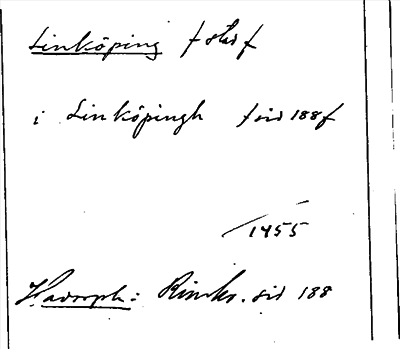 Linköping
i Linköpingh sid 188f
1455
Hadorph: Rimkr. sid 188